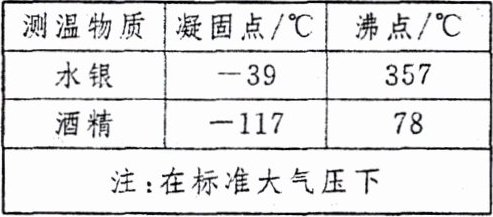 测温物质 凝固点/℃ 沸点/℃
水银 -39 357
酒精 -117 78
注:在标准大气压下